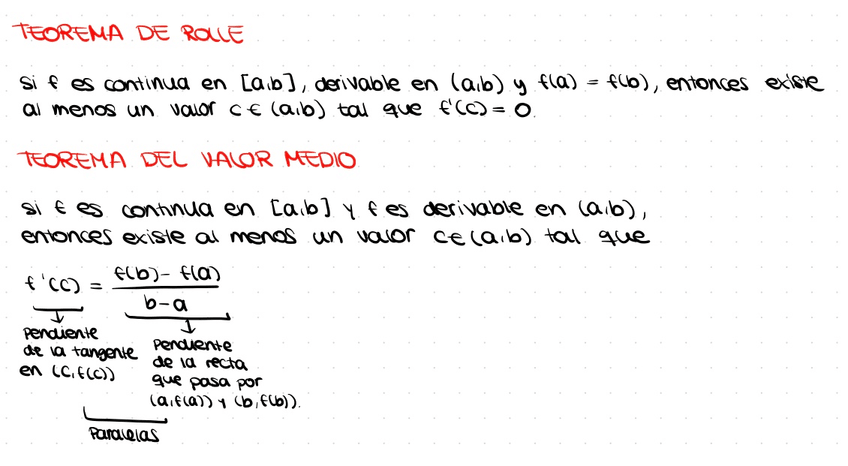 TEOREMA DE ROLLE
Si f es continua en [a,b], derivable en (a,b) y f(a) = f(b), entonces existe
al menos un valor c ∈ (a,b) tal que f'(c) = 0
TEOREMA DEL VALOR MEDIO
Si f es continua en [a,b] y f es derivable en (a,b),
entonces existe al menos un valor c ∈ (a,b) tal que
f'(c) = f(b) - f(a) / b - a
Pendiente
de la tangente
en (c,f(c))
Pendiente
de la recta
que pasa por
(a,f(a)) y (b,f(b)).
Paralelas